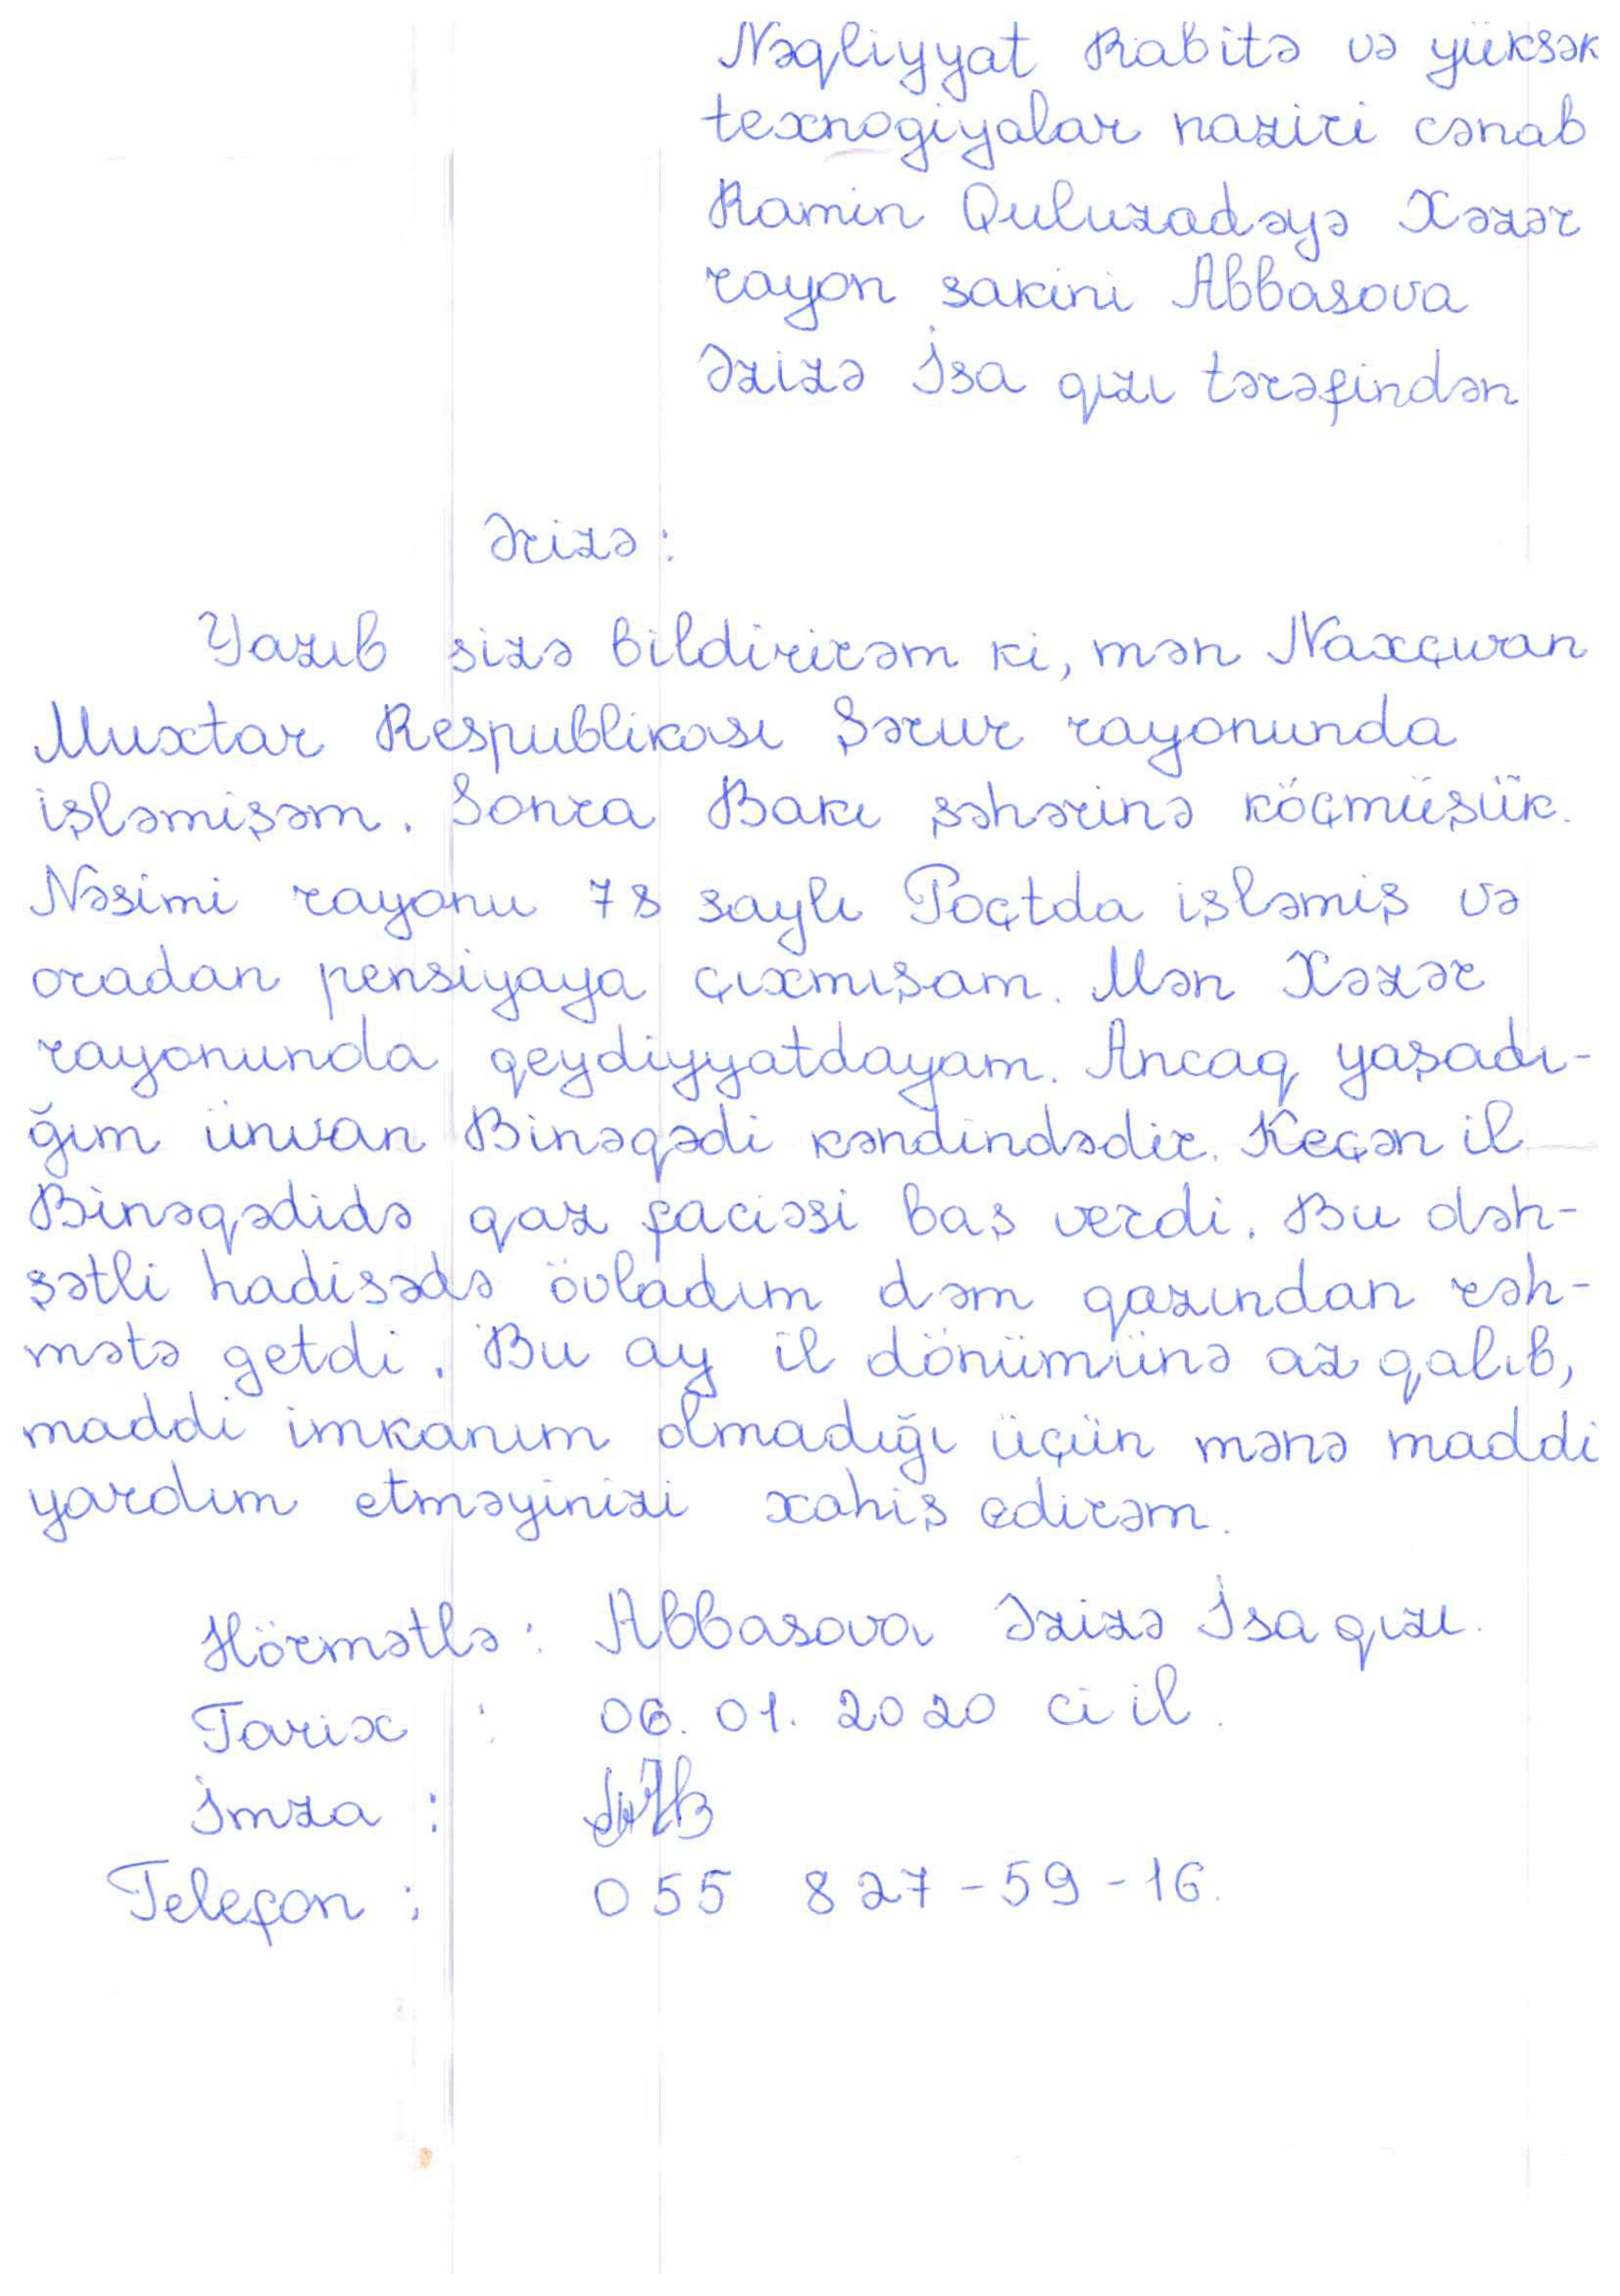 Nəqliyyat Rabitə və yüksək
texnogiyalar naziri cənab
Ramin Quluzadəyə Xəzər
rayon sakini Abbasova
Əzizə İsa qızı tərəfindən
Ərizə:
Yazıb sizə bildirirəm ki, mən Naxçıvan
Muxtar Respublikası Şərur rayonunda
işləmişəm. Sonra Bakı şəhərinə köçmüşük.
Nəsimi rayonu 78 saylı Poçtda işləmiş və
oradan pensiyaya çıxmışam. Mən Xəzər
rayonunda qeydiyyatdayam. Ancaq yaşadı-
ğım ünvan Binəqədi kəndindədir. Keçən il
Binəqədidə qaz faciəsi baş verdi. Bu dəh-
şətli hadisədə övladım dəm qazından rəh-
mətə getdi. Bu ay il dönümünə az qalıb,
maddi imkanım olmadığı üçün mənə maddi
yardım etməyinizi xahiş edirəm.
Hörmətlə: Abbasova Əzizə İsa qızı.
Tarix : 06.01.2020 ci il.
İmza :
Telefon : 055 827-59-16.